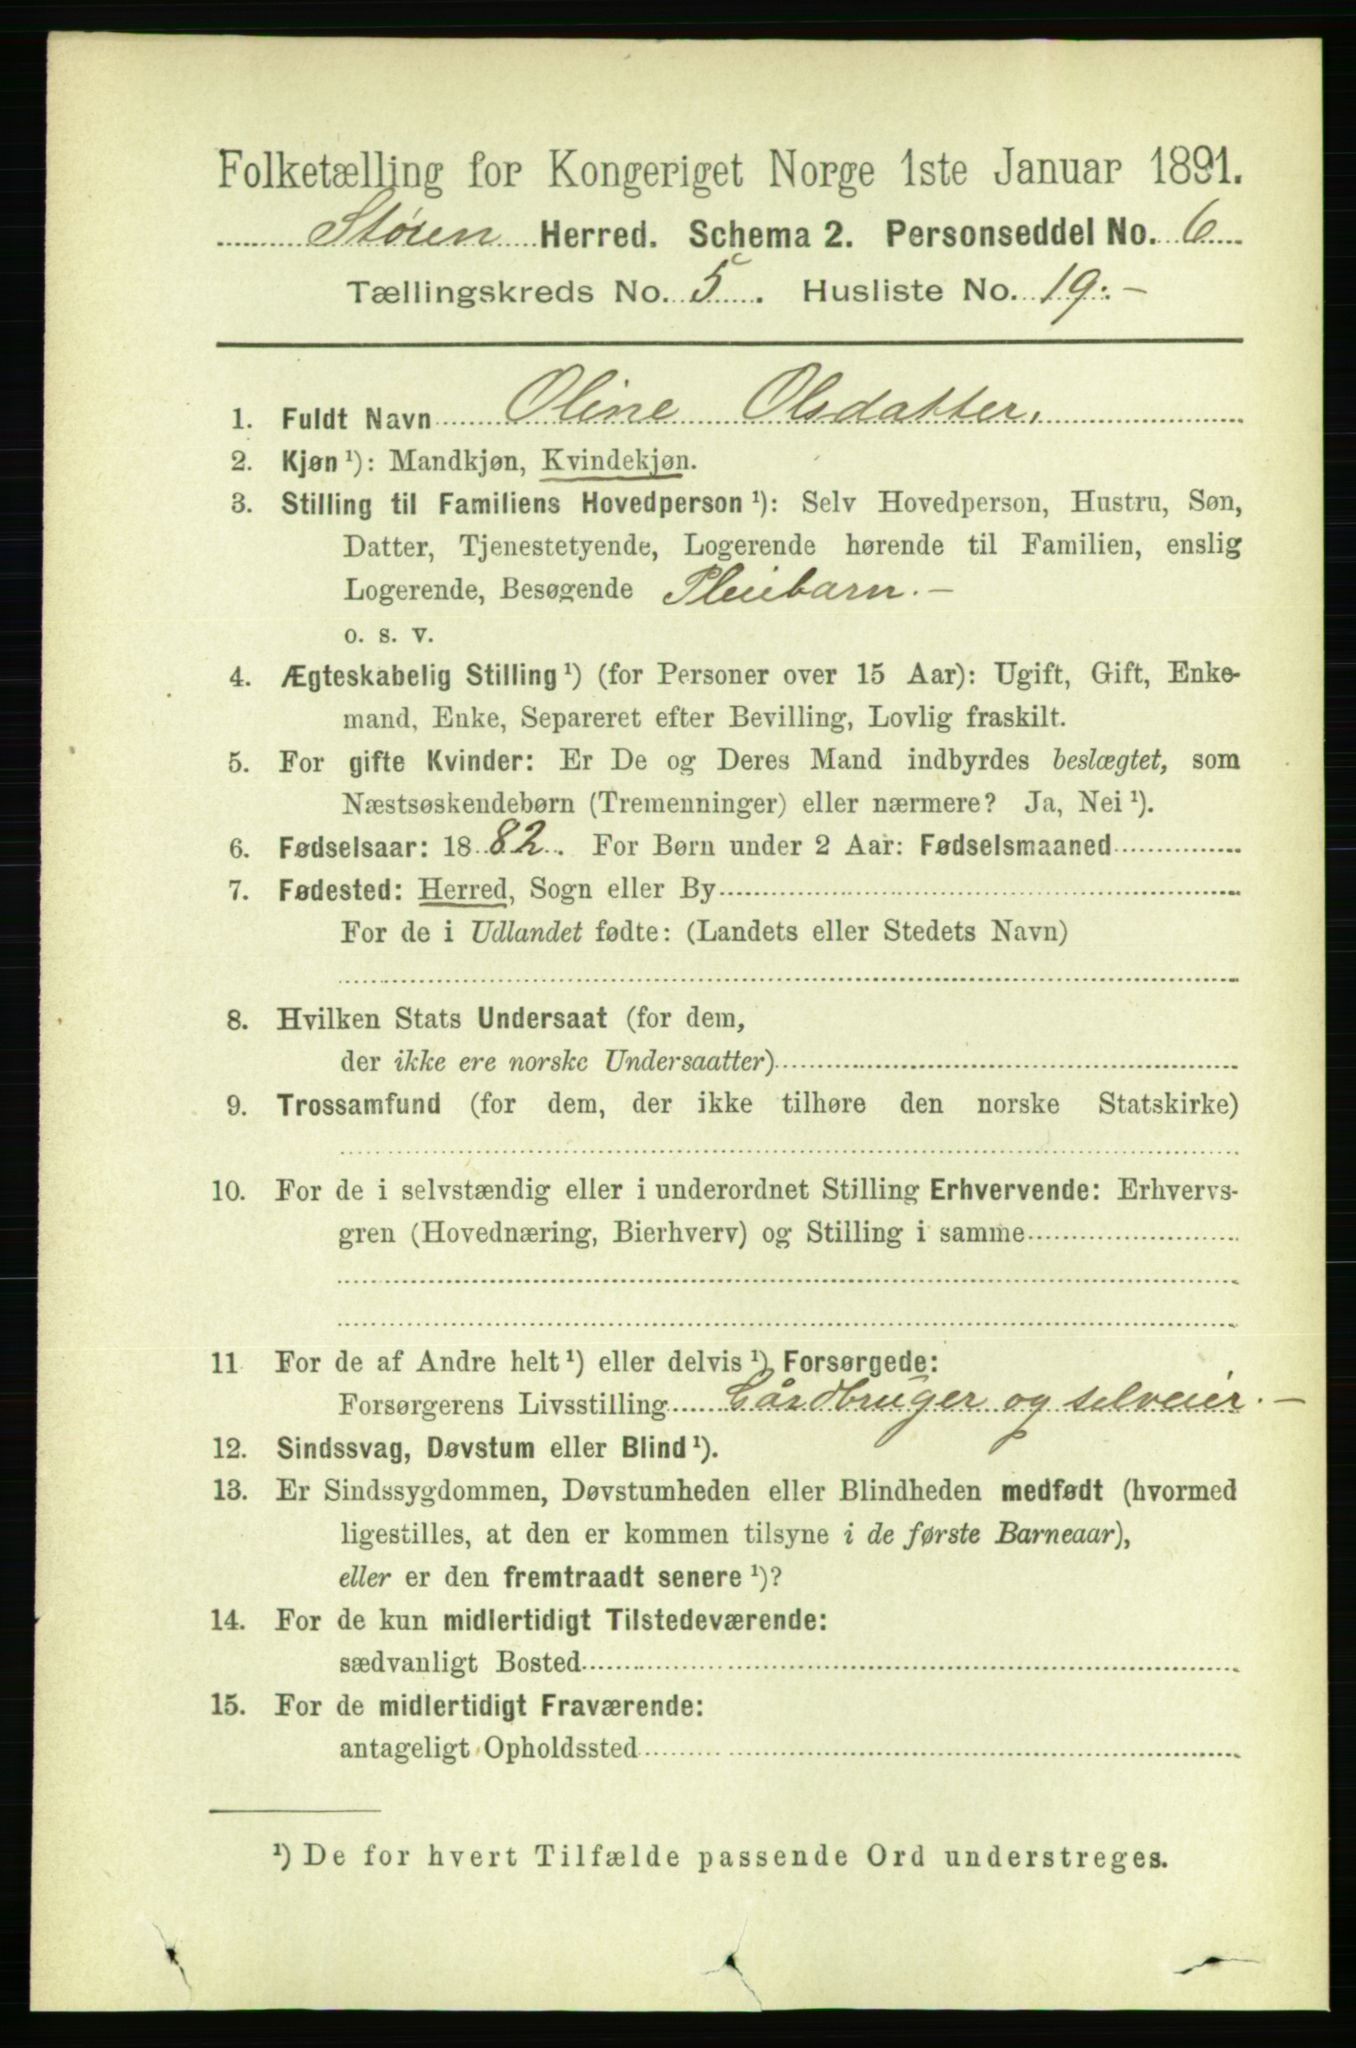 Folketælling for Kongeriget Norge 1ste Januar 1891.
Støren Herred. Schema 2. Personseddel No. 6
Tællingskreds No. 5. Husliste No. 19:-
1. Fuldt Navn Oline Olsdatter.
2. Kjøn ¹): Mandkjøn, Kvindekjøn.
3. Stilling til Familiens Hovedperson ¹): Selv Hovedperson, Hustru, Søn,
Datter, Tjenestetyende, Logerende hørende til Familien, enslig
Logerende, Besøgende Pleiebarn.-
o. s. v.
4. Ægteskabelig Stilling ¹) (for Personer over 15 Aar): Ugift, Gift, Enke-
mand, Enke, Separeret efter Bevilling, Lovlig fraskilt.
5. For gifte Kvinder: Er De og Deres Mand indbyrdes beslægtet, som
Næstsøskendebørn (Tremenninger) eller nærmere? Ja, Nei ¹).
6. Fødselsaar: 1882. For Børn under 2 Aar: Fødselsmaaned
7. Fødested: Herred, Sogn eller By
For de i Udlandet fødte: (Landets eller Stedets Navn)
8. Hvilken Stats Undersaat (for dem,
der ikke ere norske Undersaatter)
9. Trossamfund (for dem, der ikke tilhøre den norske Statskirke)
10. For de i selvstændig eller i underordnet Stilling Erhvervende: Erhvervs-
gren (Hovednæring, Bierhverv) og Stilling i samme
11 For de af Andre helt ¹) eller delvis ¹) Forsørgede:
Forsørgerens Livsstilling Gårdbruger og selveier.-
12. Sindssvag, Døvstum eller Blind ¹).
13. Er Sindssygdommen, Døvstumheden eller Blindheden medfødt (hvormed
ligestilles, at den er kommen tilsyne i de første Barneaar),
eller er den fremtraadt senere ¹)?
14. For de kun midlertidigt Tilstedeværende:
sædvanligt Bosted
15. For de midlertidigt Fraværende:
antageligt Opholdssted
¹) De for hvert Tilfælde passende Ord understreges.